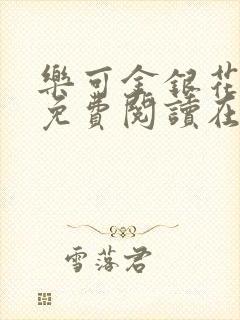 樂可金銀花
免費閱讀在
雪落君